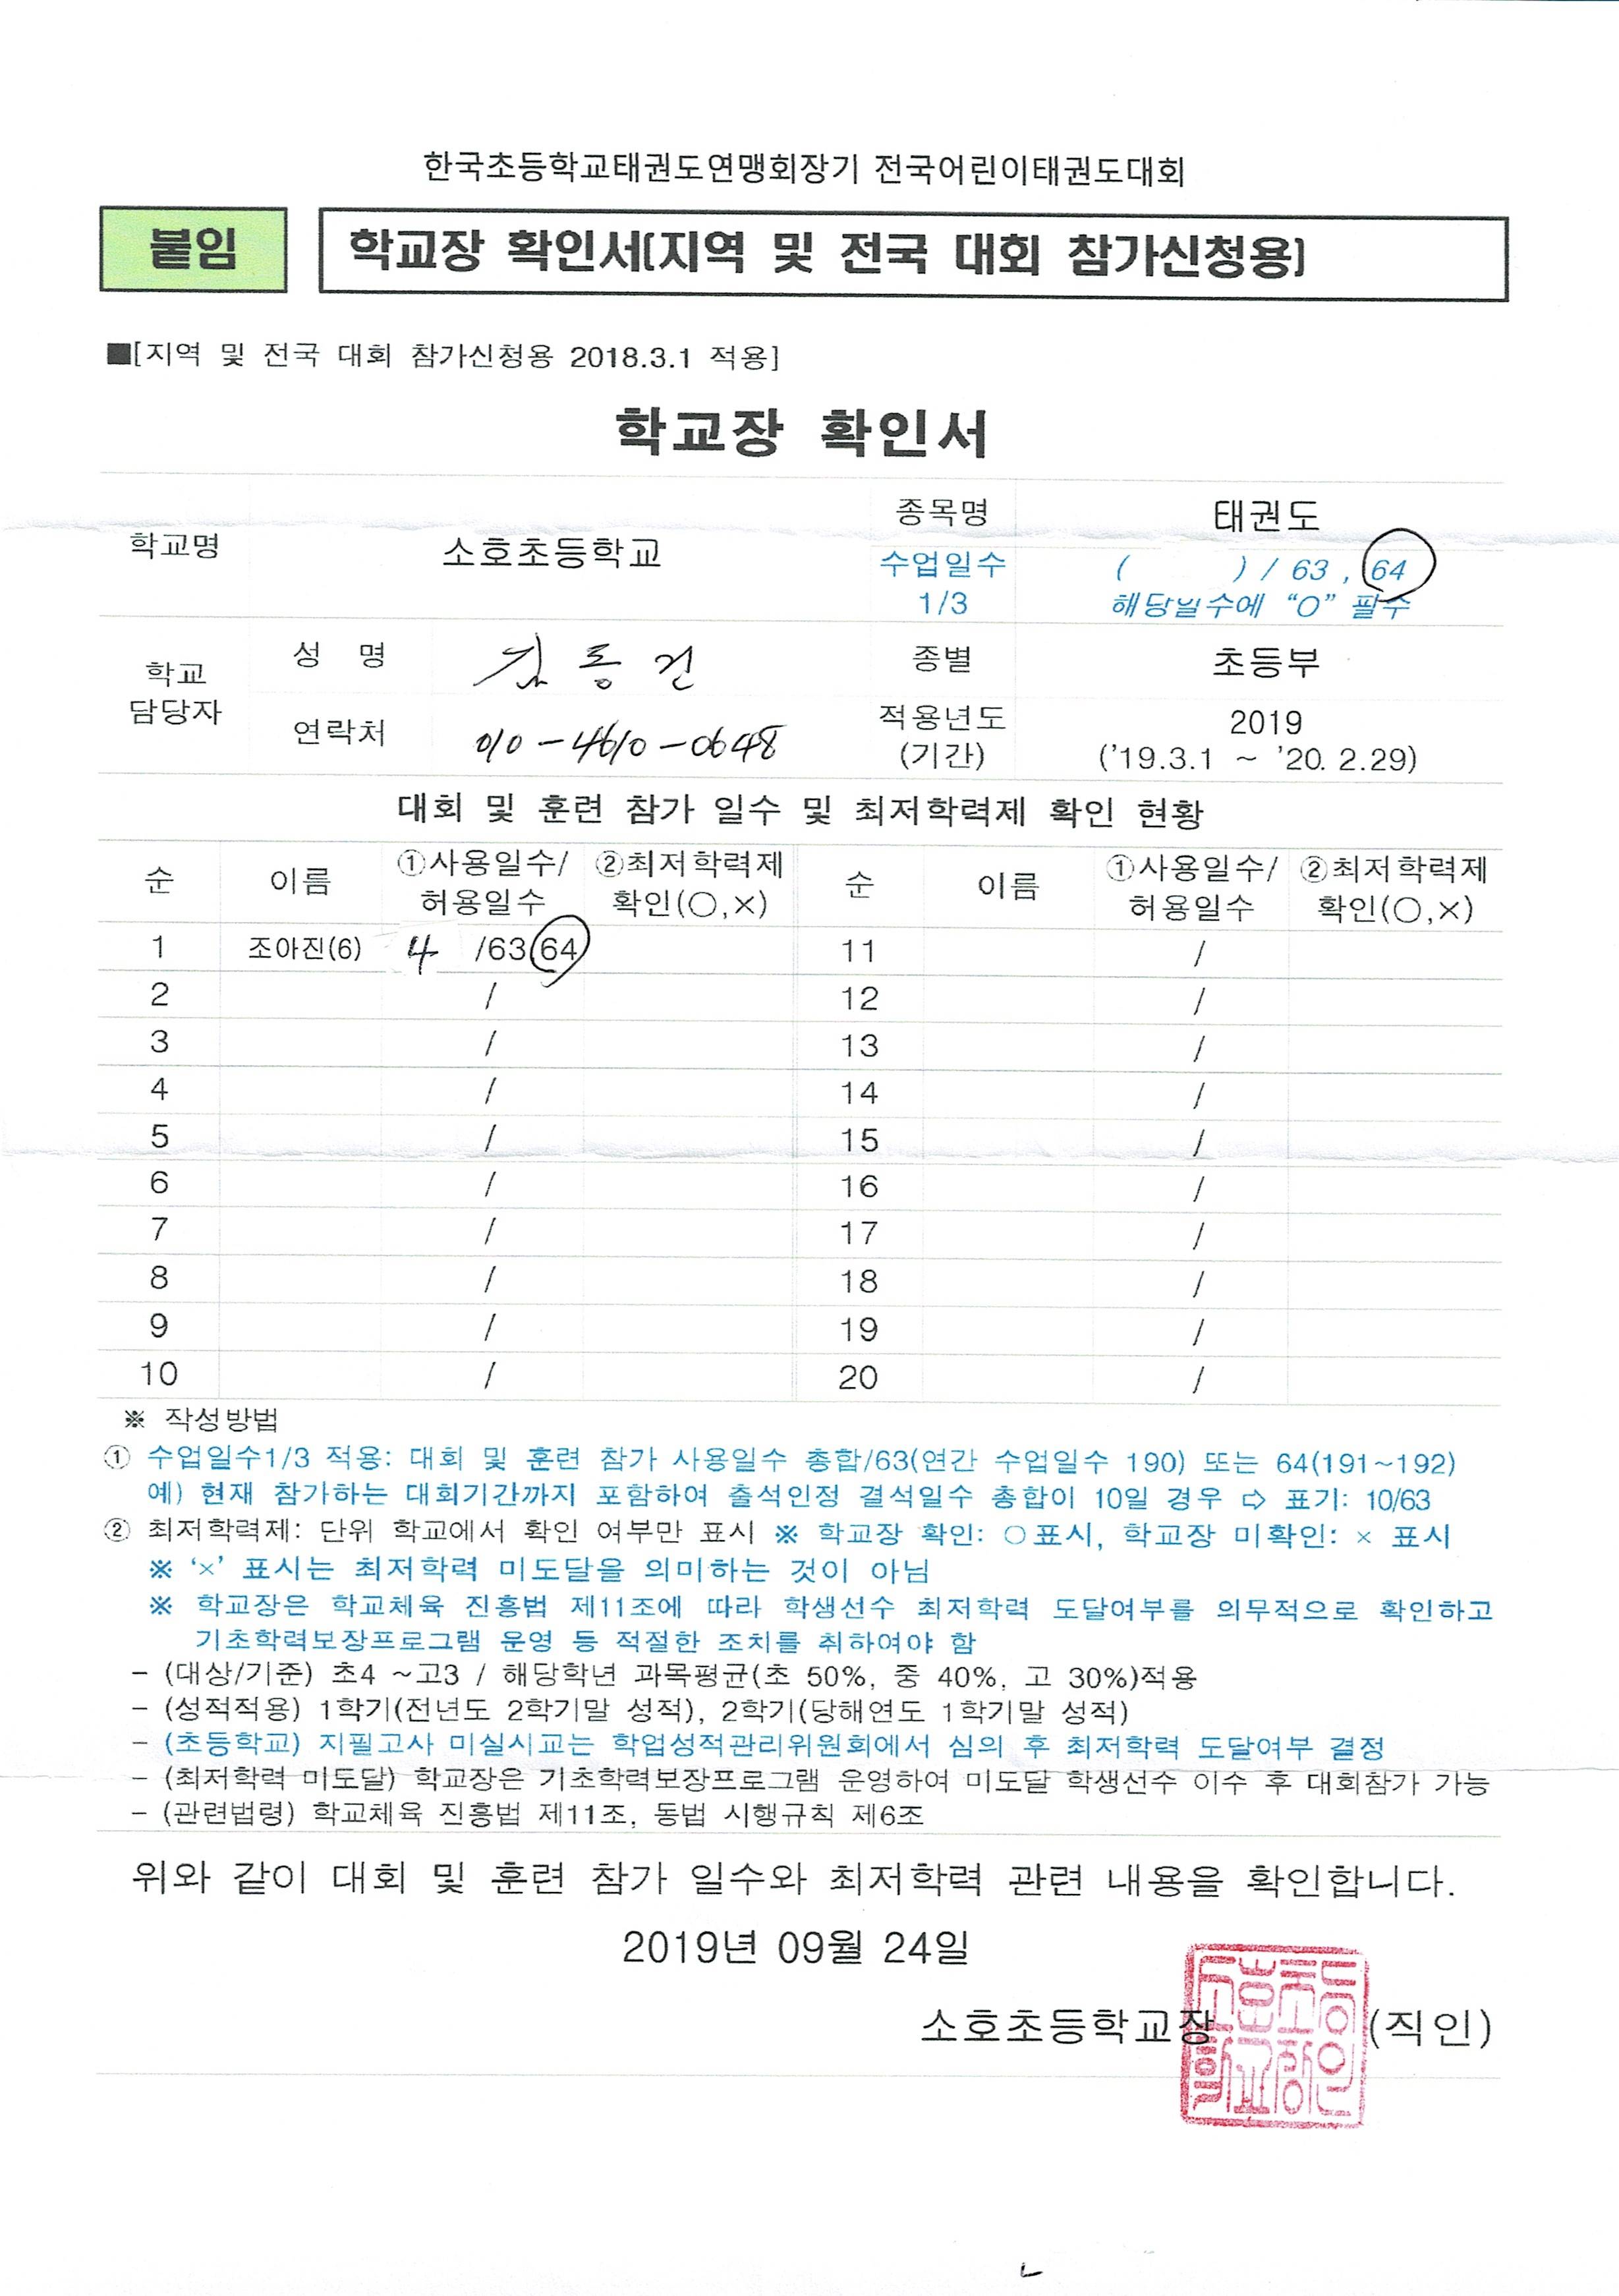 한국초등학교태권도연맹회장기 전국어린이태권도대회
붙임
학교장 확인서[지역 및 전국 대회 참가신청용]
■[지역 및 전국 대회 참가신청용 2018.3.1 적용]
학교장 확인서
학교명 소호초등학교 종목명 태권도
수업일수 1/3 ( ) / 63 , 64
해당일수에 “O” 필수
학교 담당자 성 명 김동건 종별 초등부
연락처 010-4610-0648 적용년도 (기간) 2019
('19.3.1 ~ '20. 2.29)
대회 및 훈련 참가 일수 및 최저학력제 확인 현황
순 이름 ①사용일수/허용일수 ②최저학력제 확인(○,×) 순 이름 ①사용일수/허용일수 ②최저학력제 확인(○,×)
1 조아진(6) 4 /63 64 11 /
2 / 12 /
3 / 13 /
4 / 14 /
5 / 15 /
6 / 16 /
7 / 17 /
8 / 18 /
9 / 19 /
10 / 20 /
※ 작성방법
① 수업일수1/3 적용: 대회 및 훈련 참가 사용일수 총합/63(연간 수업일수 190) 또는 64(191~192)
예) 현재 참가하는 대회기간까지 포함하여 출석인정 결석일수 총합이 10일 경우 ⇨ 표기: 10/63
② 최저학력제: 단위 학교에서 확인 여부만 표시 ※ 학교장 확인: ○표시, 학교장 미확인: × 표시
※ ‘×’ 표시는 최저학력 미도달을 의미하는 것이 아님
※ 학교장은 학교체육 진흥법 제11조에 따라 학생선수 최저학력 도달여부를 의무적으로 확인하고
기초학력보장프로그램 운영 등 적절한 조치를 취하여야 함
- (대상/기준) 초4 ~고3 / 해당학년 과목평균(초 50%, 중 40%, 고 30%)적용
- (성적적용) 1학기(전년도 2학기말 성적), 2학기(당해연도 1학기말 성적)
- (초등학교) 지필고사 미실시교는 학업성적관리위원회에서 심의 후 최저학력 도달여부 결정
- (최저학력 미도달) 학교장은 기초학력보장프로그램 운영하여 미도달 학생선수 이수 후 대회참가 가능
- (관련법령) 학교체육 진흥법 제11조, 동법 시행규칙 제6조
위와 같이 대회 및 훈련 참가 일수와 최저학력 관련 내용을 확인합니다.
2019년 09월 24일
소호초등학교장 (직인)
소호초등
학교장인